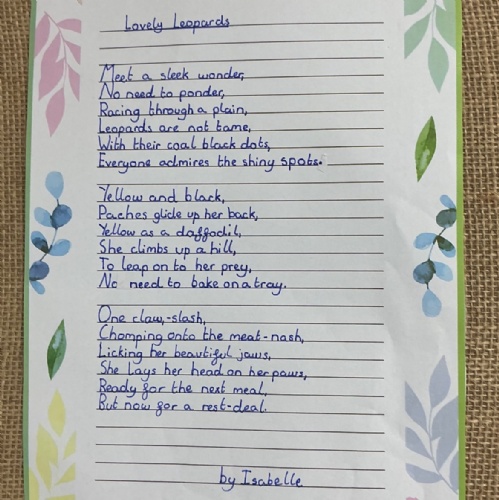 Lovely Leopards
Meet a sleek wonder,
No need to ponder,
Racing through a plain,
Leopards are not tame,
With their coal black dots,
Everyone admires the shiny spots.
Yellow and black,
Paches glide up her back,
Yellow as a daffodil,
She climbs up a hill,
To leap on to her prey,
No need to bake on a tray.
One claw,-slash,
Chomping onto the meat-nash,
Licking her beautiful jaws,
She lays her head on her paws,
Ready for the next meal,
But now for a rest-deal.
by Isabelle